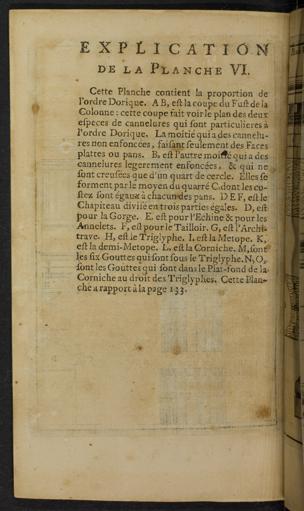 EXPLICATION
DE LA PLANCHE VI.
Cette Planche contient la proportion de
l'ordre Dorique. A B, est la coupe du Fust de la
Colonne: cette coupe fait voir le plan des deux
especes de cannelures qui sont particulieres à
l'ordre Dorique. La moitié qui a des cannelu-
res non enfoncées, faisant seulement des Faces
plattes ou pans. B. est l'autre moitié qui a des
cannelures legerement enfoncées, & qui ne
sont creusées que d'un quart de cercle. Elles se
forment par le moyen du quarré C. dont les co-
stez sont égaux à chacun des pans. D E F, est le
Chapiteau divisé en trois parties égales. D, est
pour la Gorge. E. est pour l'Echine & pour les
Annelets. F, est pour le Tailloir. G, est l'Archi-
trave. H, est le Triglyphe. I. est la Metope. K,
est la demi-Metope. L. est la Corniche. M, sont
les six Gouttes qui sont sous le Triglyphe. N, O,
sont les Gouttes qui sont dans le Plat-fond de la
Corniche au droit des Triglyphes. Cette Plan-
che a rapport à la page 133.